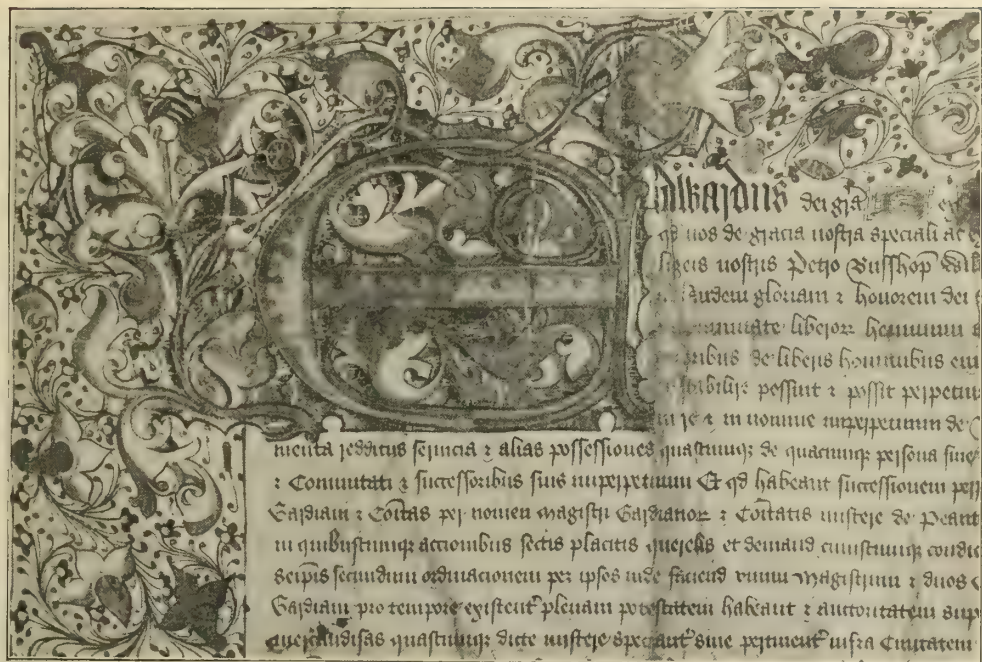 Edwardus dei gra
qd nos de gracia nostra speciali ac
ligeis nostris Petro Bisshop
laudem gloriam & honorem dei
liberorz hominum
de liberis hominibus
possint & possit perpetuis
re & in nomine imperpetuum de
menta redditus servicia & alias possessiones quascumqz de quacumqz persona sive
& Comunitati & successoribus suis imperpetuum Et qd habeant successionem
Gardiani & Coitas per nomen magistri Gardianorz & Coitatis mistere de Peaut
in quibuscumqz accionibus sectis placitis querelis et demand cuiuscumqz condic
seipis secundum ordinacionem per ipsos inde faciend unum magistrum & duos
Gardiani pro tempore existent plenam potestatem habeant & auctoritatem sup
mercandisas quascumqz dicte mistere spectant sive pertinent infra Civitatem